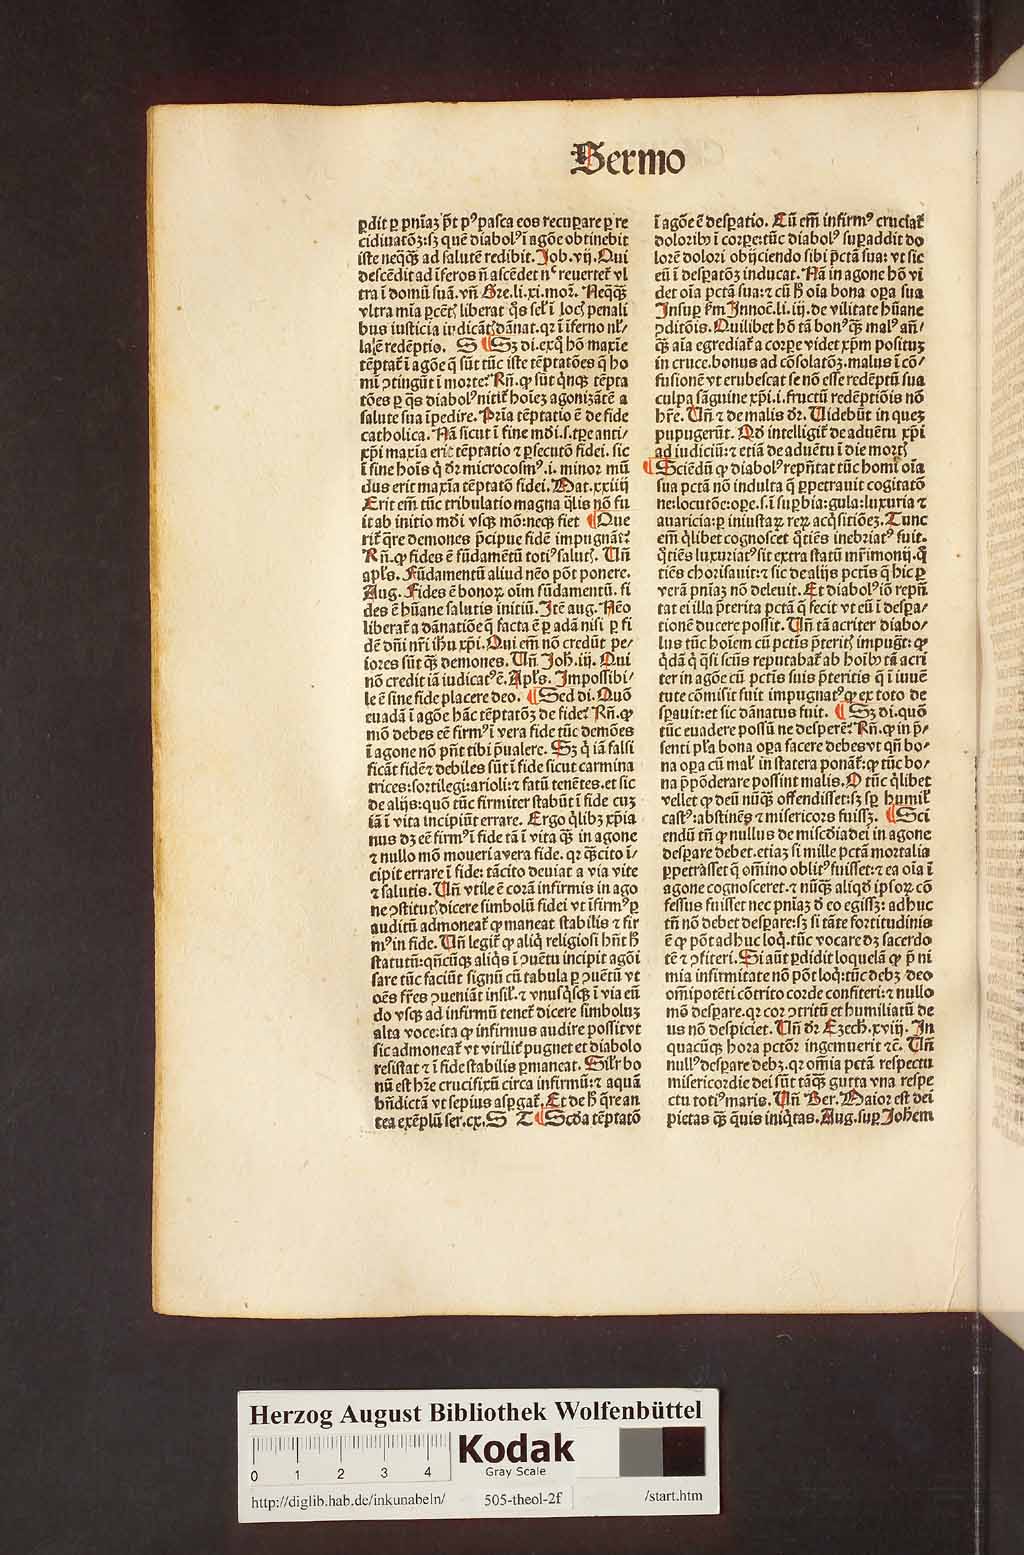 Sermo
ꝑdit ꝑ pnĩaꝫ p̃t pꝰ pasca eos recuꝑare ꝑ re
cidiuatõꝫ:sꝫ quẽ diabolꝰ ĩ agõe obtinebit
iste neqq̃ꝫ ad salutẽ redibit. Job. vij. Qui
descẽdit ad ĩferos ñ ascẽdet nͨ reuerteť vl
tra ĩ domũ suã. vñ Gre. li. xi. moꝛ. Neqq̃ꝫ
vltra mĩa ꝑcẽtꝭ liberat q̃s sel̃ ĩ locꝭ penali
bus iusticia iudicãtꝭ dãnat. qꝛ ĩ ĩferno nł/
la ẽ redẽptio. S ¶ Sꝫ di. ex q̃ hõ maxĩe
tẽptať ĩ agõe q̃ sũt tũc iste tẽptatões q̃ ho
mĩ ↄtingũt ĩ morte? Rñ. ꝙ sũt q̃nqꝫ tẽpta
tões ꝑ q̃s diabolꝰ nitiť hoĩeꝫ agonizãtẽ a
salute sua ĩpedire. Pria tẽptatio ẽ de fide
catholica. Nã sicut ĩ fine mũdi .s. tꝑe anti/
xp̃i maxĩa erit tẽptatio ⁊ ꝑsecutõ fidei. sic
ĩ fine hoĩs q̃ dr̃ microcosmꝰ .i. minor mũ
dus erit maxĩa tẽptatõ fidei. Mat. xxiiij
Erit em̃ tũc tribulatio magna q̃lis nõ fu
it ab initio mũdi vsqꝫ mõ: neqꝫ fiet ¶ Que
riť q̃re demones p̃cipue fidẽ impugnãt?
Rñ. ꝙ fides ẽ fũdamẽtũ totiꝰ salutꝭ. Vñ
apl̃s. Fũdamentũ aliud nẽo põt ponere.
Aug. Fides ẽ bonoꝝ oĩm fũdamentũ. fi
des ẽ hũane salutis initiũ. Itẽ aug. Nẽo
liberať a dãnatiõe q̃ facta ẽ ꝑ adã nisi ꝑ fi
dẽ dñi nr̃i ih̃u xp̃i. Qui em̃ nõ credũt pe/
iores sũt q̃ꝫ demones. Vñ Joh̃. iij. Qui
nõ credit iã iudicatꝰ ẽ. Apl̃s. Impossibi/
le ẽ sine fide placere deo. ¶ Sed di. Quõ
euadã ĩ agõe hãc tẽptatõꝫ de fide? Rñ. ꝙ
mõ debes eẽ firmꝰ ĩ vera fide tũc demões
ĩ agone nõ pñt tibi p̃ualere. Sꝫ q̃ iã falsi
ficãt fidẽ ⁊ debiles sũt ĩ fide sicut carmina
trices: sortilegi: arioli: ⁊ fatũ tenẽtes. et sic
de alijs: quõ tũc firmiter stabũt ĩ fide cuꝫ
iã ĩ vita incipiũt errare. Ergo q̃libꝫ xp̃ia
nus dꝫ eẽ firmꝰ ĩ fide tã ĩ vita q̃ꝫ in agone
⁊ nullo mõ moueri a vera fide. qꝛ q̃ꝫcito ĩ/
cipit errare ĩ fide: tãcito deuiat a via vite
⁊ salutis. Vñ vtile ẽ corã infirmis in ago
ne ↄstitutꝭ dicere simbolũ fidei vt ĩfirmꝰ ꝑ
auditũ admoneať ꝙ maneat stabilis ⁊ fir
mꝰ in fide. Vñ legiť ꝙ aliq̃ religiosi hñt h̃
statutũ: qñcũqꝫ aliq̃s ĩ ↄuẽtu incipit agõi
sare tũc faciũt signũ cũ tabula ꝑ ↄuẽtũ vt
oẽs fr̃es ↄueniãt insil̃. ⁊ vnusq̃sqꝫ ĩ via eũ
do vsqꝫ ad infirmũ teneť dicere simboluꝫ
alta voce: ita ꝙ infirmus audire possit vt
sic admoneať vt viriliť pugnet et diabolo
resistat ⁊ ĩ fide stabilis ꝑmaneat. Sil̃r bo
nũ est hr̃e crucifixũ circa infirmũ: ⁊ aquã
bñdictã vt sepius asꝑgať. Et de h̃ q̃re an
tea exẽplũ ser. cx. S T ¶ Scďa tẽptatõ
ĩ agõe ẽ desꝑatio. Cũ em̃ infirmꝰ cruciať
doloribꝰ ĩ corꝑe: tũc diabolꝰ suꝑaddit do
lorẽ dolori obijciendo sibi p̃ctã sua: vt sic
eũ ĩ desꝑatõꝫ inducat. Nã in agone hõ vi
det oĩa pctã sua: ⁊ cũ h̃ oĩa bona oꝑa sua
Insuꝑ ẜm Innoc̃. li. iij. de vilitate hũane
ↄditõis. Quilibet hõ tã bonꝰ q̃ꝫ malꝰ añ/
q̃ꝫ aĩa egrediať a corꝑe videt xp̃m posituꝫ
in cruce. bonus ad cõsolatõꝫ. malus ĩ cõ/
fusionẽ vt erubescat se nõ esse redẽptũ sua
culpa sãguine xp̃i .i. fructũ redẽptiõis nõ
hr̃e. Vñ ⁊ de malis dr̃. Videbũt in queꝫ
pupugerũt. Qď intelligiť de aduẽtu xp̃i
ad iudiciũ: ⁊ etiã de aduẽtu ĩ die mortꝭ
¶ Sciẽdũ ꝙ diabolꝰ repñtat tũc homĩ oĩa
sua pctã nõ indulta q̃ ꝑpetrauit cogitatõ
ne: locutõe: oꝑe. s. ĩ suꝑbia: gula: luxuria ⁊
auaricia: ꝑ iniustaꝝ reꝝ acq̃sitiõeꝫ. Tunc
em̃ q̃libet cognoscet q̃tiẽs inebriatꝰ fuit.
q̃tiẽs luxuriatꝰ sit extra statũ mr̃imonij. q̃
tiẽs chorisauit: ⁊ sic de alijs pctĩs q̃ hic ꝑ
verã pniaꝫ nõ deleuit. Et diabolꝰ iõ repñ
tat ei illa p̃terita pctã q̃ fecit vt eũ ĩ desꝑa/
tionẽ ducere possit. Vñ tã acriter diabo/
lus tũc hoĩem cũ pctĩs p̃teritꝭ impugt: ꝙ
q̃dã q̃ q̃si scũs reputabať ab hoĩbꝰ tã acri
ter in agõe cũ pctĩs suis p̃teritis q̃ ĩ iuuẽ
tute cõmisit fuit impugnatꝰ ꝙ ex toto de
sꝑauit: et sic dãnatus fuit. ¶ Sꝫ di. quõ
tũc euadere possũ ne desperẽ? Rñ. ꝙ in p̃/
senti pl̃a bona oꝑa facere debes vt qñ bo/
na oꝑa cũ mal̃ in statera ponãť: ꝙ tũc bo/
na p̃põderare possint malis. O tũc q̃libet
vellet ꝙ deũ nũq̃ꝫ offendisset: sꝫ sꝑ humil̃
castꝰ: abstinẽs ⁊ misericors fuissꝫ. ¶ Sci
endũ tñ ꝙ nullus de mĩscďia dei in agone
desꝑare debet. etiaꝫ si mille pctã mortalia
ꝑpetrasset q̃ om̃ino oblitꝰ fuisset: ⁊ ea oĩa ĩ
agone cognosceret. ⁊ nũq̃ꝫ aliqď ipsoꝝ cõ
fessus fuisset nec pniaꝫ ď eo egissꝫ: adhuc
tñ nõ debet desꝑare: sꝫ si tãte fortitudinis
ẽ ꝙ põt adhuc loq̃. tũc vocare dꝫ sacerdo
tẽ ⁊ ↄfiteri. Si aũt ꝑdidit loquelã ꝙ p̃ ni
mia infirmitate nõ põt loq̃: tũc debꝫ deo
om̃ipotẽti cõtrito corde confiteri: ⁊ nullo
mõ desꝑare. qꝛ cor ↄtritũ et humiliatũ de
us nõ despiciet. Vñ dr̃ Ezech̃. xviij. In
quacũqꝫ hora pctõr ingemuerit ⁊c̃. Vñ
nullꝰ desꝑare debꝫ. qꝛ om̃ia pctã respectu
misericordie dei sũt tãq̃ꝫ gutta vna respe
ctu totiꝰ maris. Vñ Ber. Maior est dei
pietas q̃ꝫ q̃uis iniq̃tas. Aug. suꝑ Johem
Herzog August Bibliothek Wolfenbüttel
0 1 2 3 4
Kodak
Gray Scale
http://diglib.hab.de/inkunabeln/ 505-theol-2f /start.htm